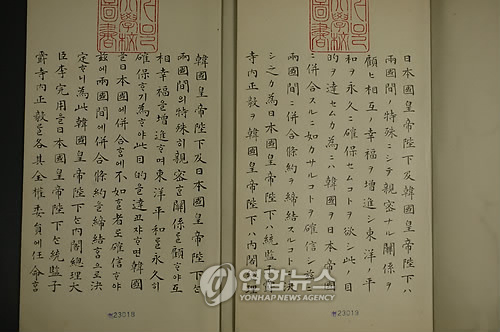 日本國皇帝陛下及韓國皇帝陛下ハ
兩國間ノ特殊ニシテ親密ナル關係ヲ
顧ヒ相互ノ幸福ヲ增進シ東洋ノ平
和ヲ永久ニ確保セムコトヲ欲シ此ノ目
的ヲ達セムカ爲ニハ韓國ヲ日本帝國
ニ併合スルニ如カサルコトヲ確信シ茲ニ
兩國間ニ併合條約ヲ締結スルコトニ決
シ之カ爲日本國皇帝陛下ハ統監子爵
寺內正毅ヲ韓國皇帝陛下ハ內閣總
韓國皇帝陛下及日本國皇帝陛下는
兩國間의特殊히親密ᄒᆞᆫ關係를顧ᄒᆞ야互
相幸福을增進ᄒᆞ며東洋平和를永久히
確保ᄒᆞ기爲ᄒᆞ야此目的을達코ᄌᆞᄒᆞ면韓國
을日本國에併合ᄒᆞᆷ에不如ᄒᆞᆫ者로確信ᄒᆞ야
茲에兩國間에併合條約을締結ᄒᆞᆷ으로決
定ᄒᆞ니爲此韓國皇帝陛下는內閣總理大
臣李完用을日本國皇帝陛下는統監子
爵寺內正毅를各其全權委員에任命ᄒᆞᆷ
23018
23018
연합뉴스
YONHAP NEWS AGENCY